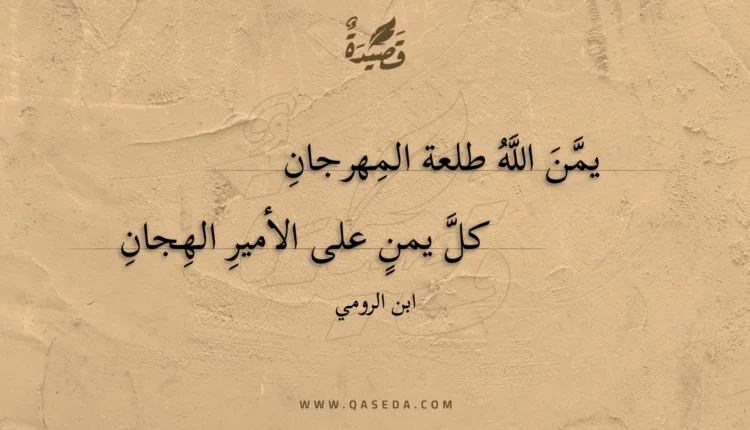 قَصِيدَةٌ
يمَّنَ اللَّهُ طلعة المِهرجانِ
كلَّ يمنٍ على الأميرِ الهِجانِ
ابن الرومي
WWW.QASEDA.COM